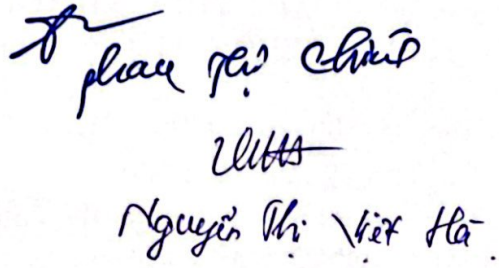 Phan Thị Chinh
Nguyễn Thị Việt Hà